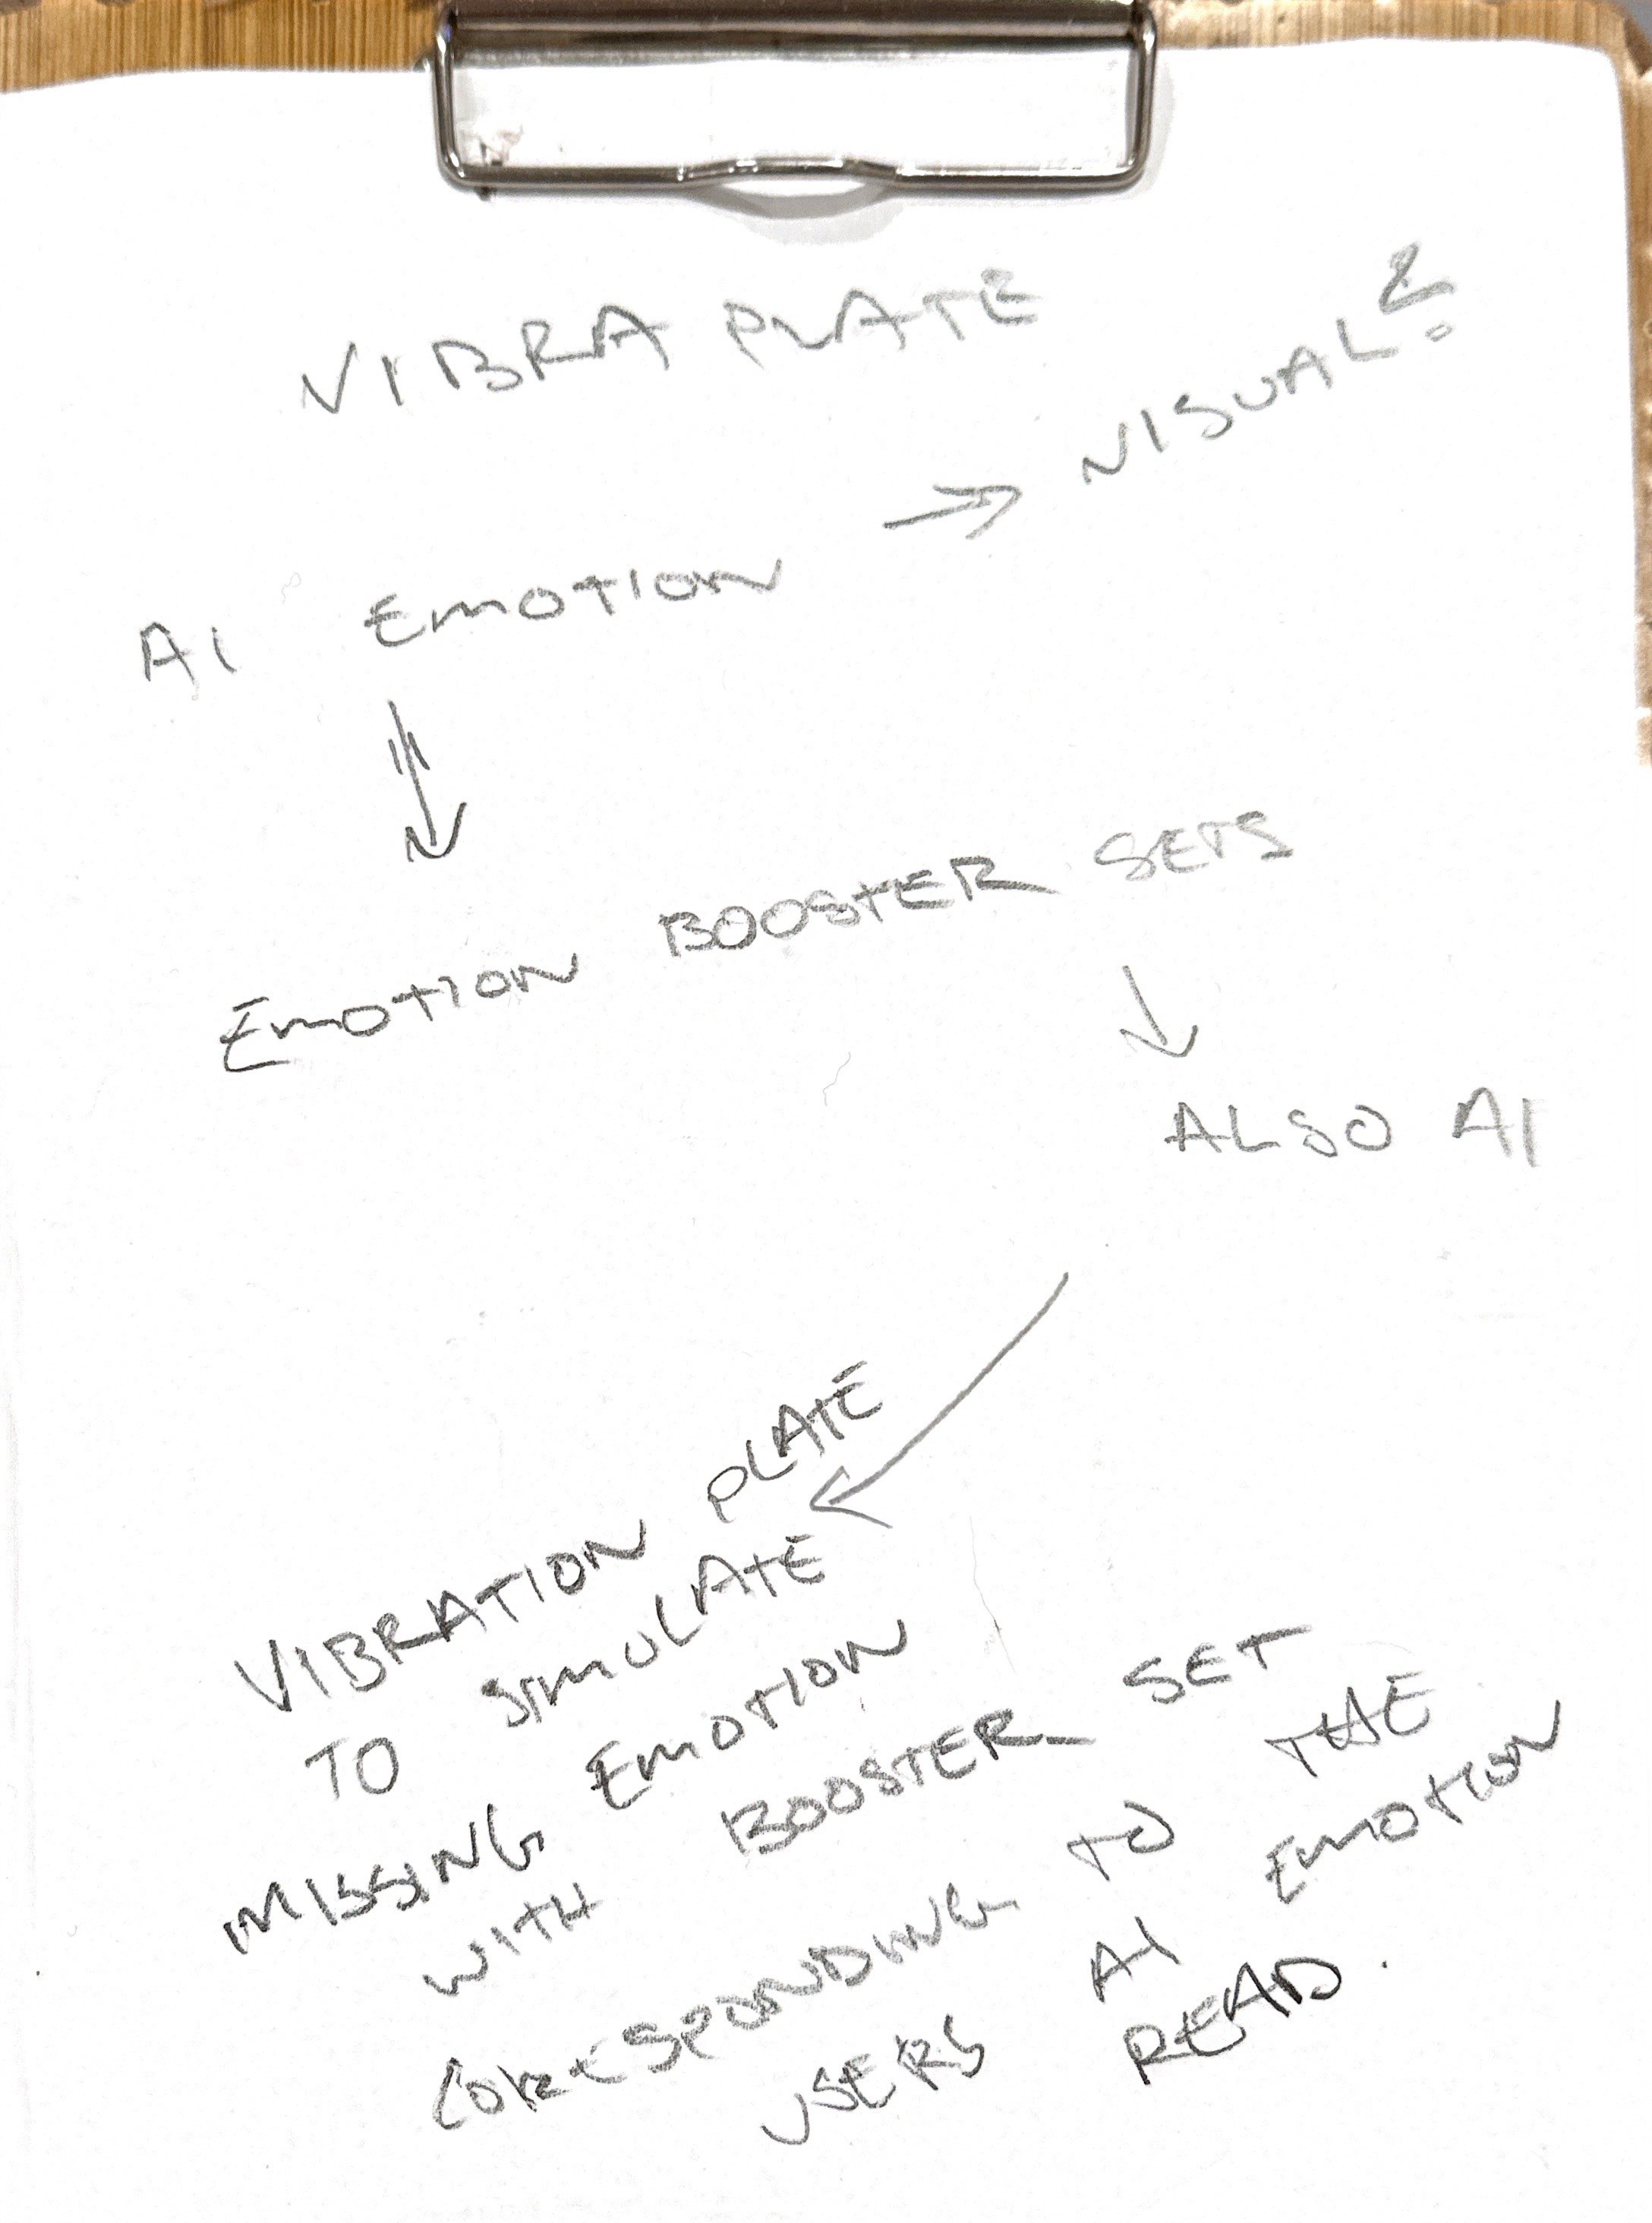 VIBRA PLATE
AI EMOTION → VISUAL?
EMOTION BOOSTER SETS
ALSO AI
VIBRATION PLATE
TO SIMULATE
MISSING EMOTION
WITH BOOSTER SET
CORESPONDING TO THE
USERS AI EMOTION
READ.